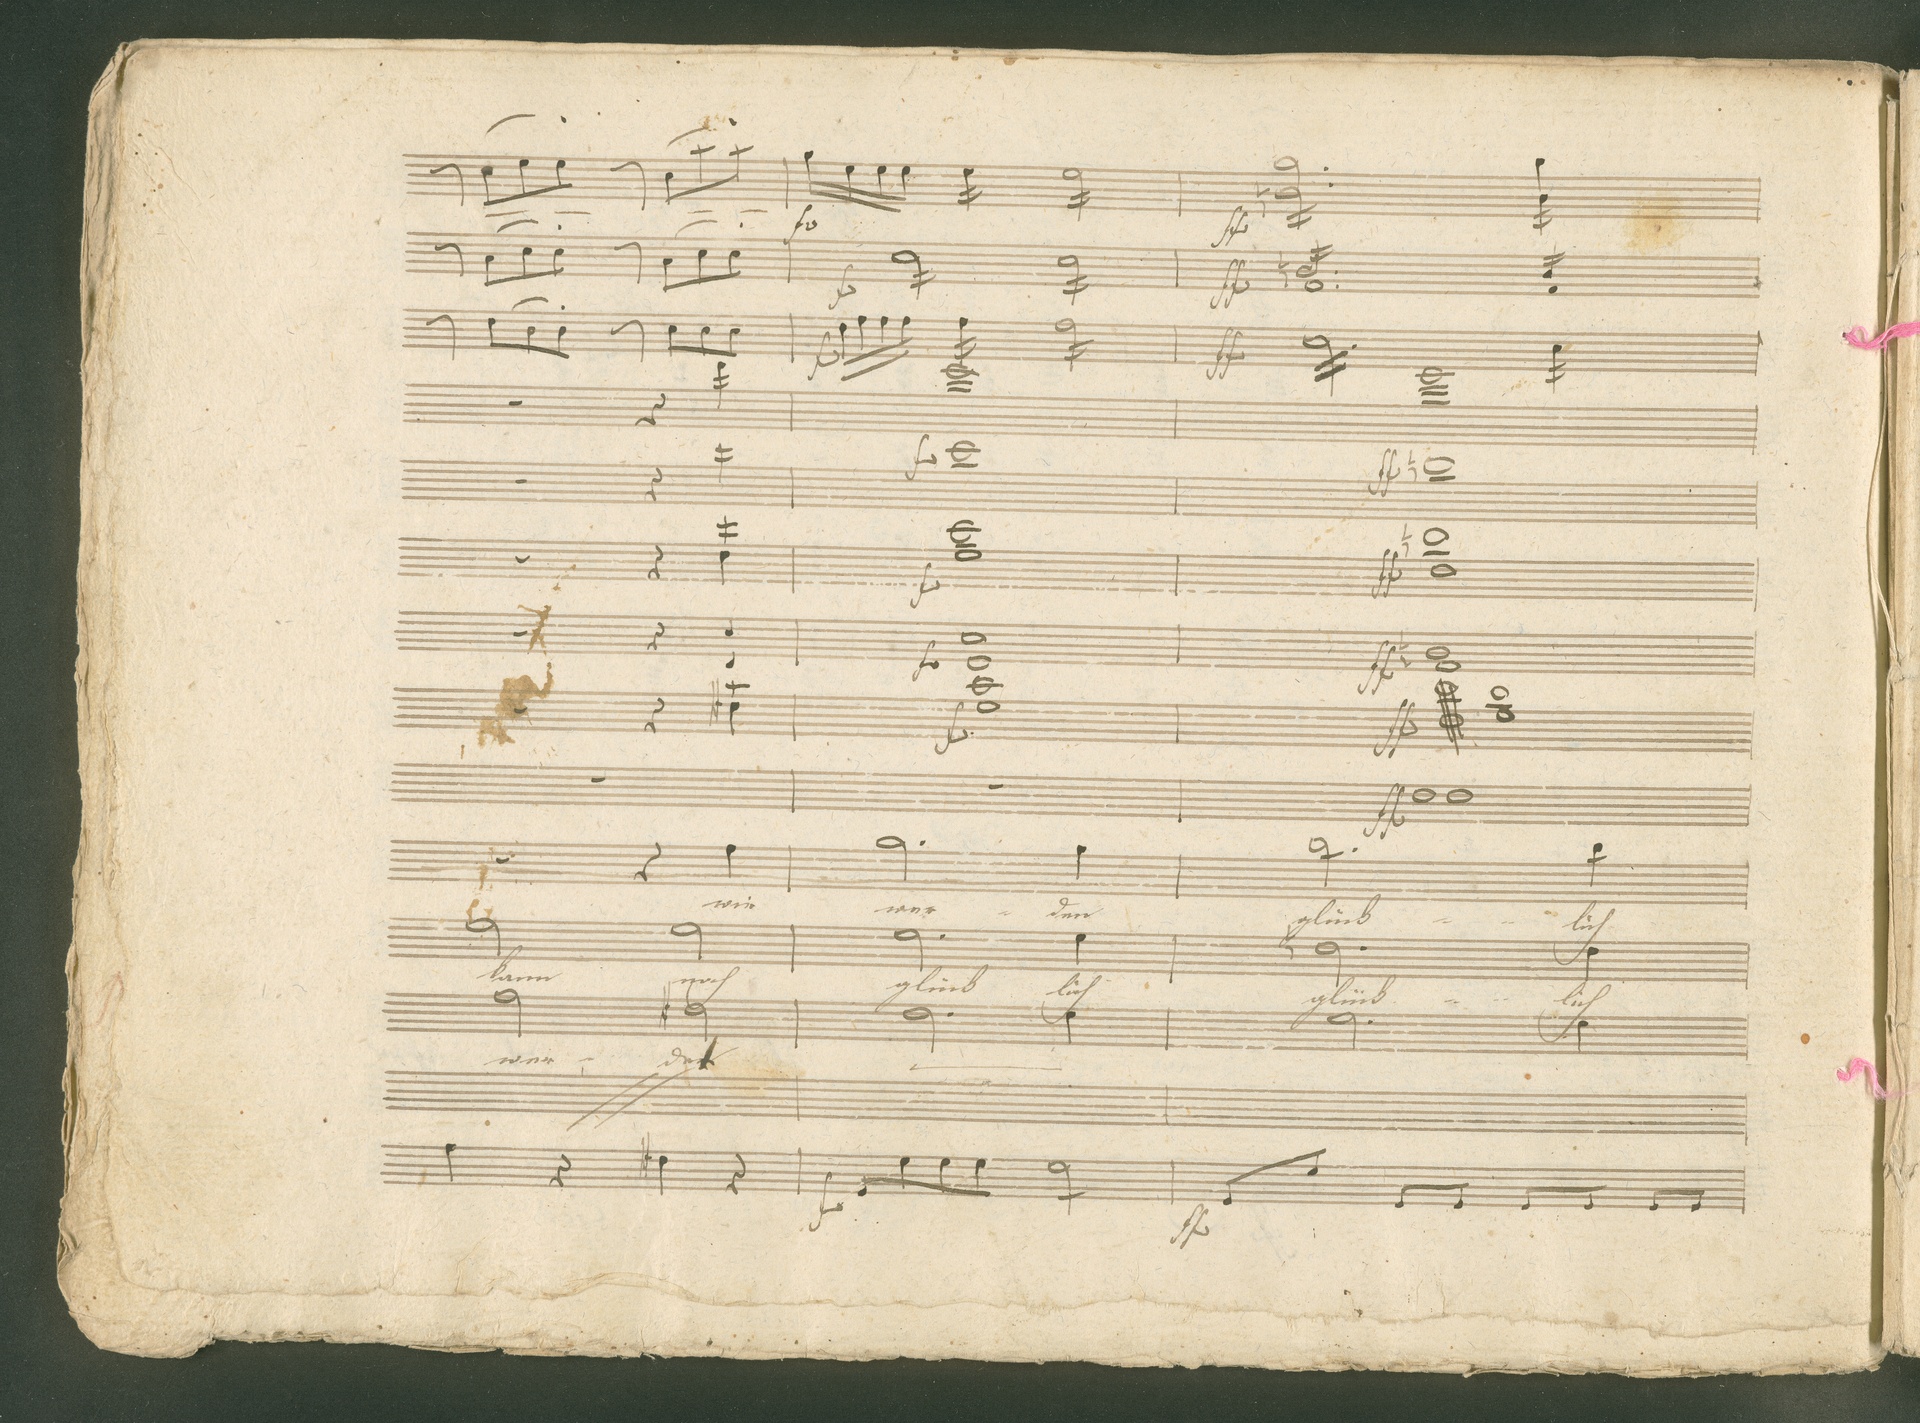 fo
f
ff
ff
f
ff
f
ff
f
ff
f
ff
f
ff
ff
wir wer - den glück - - lich
kann noch glück lich glück - - lich
wer - den
f
ff